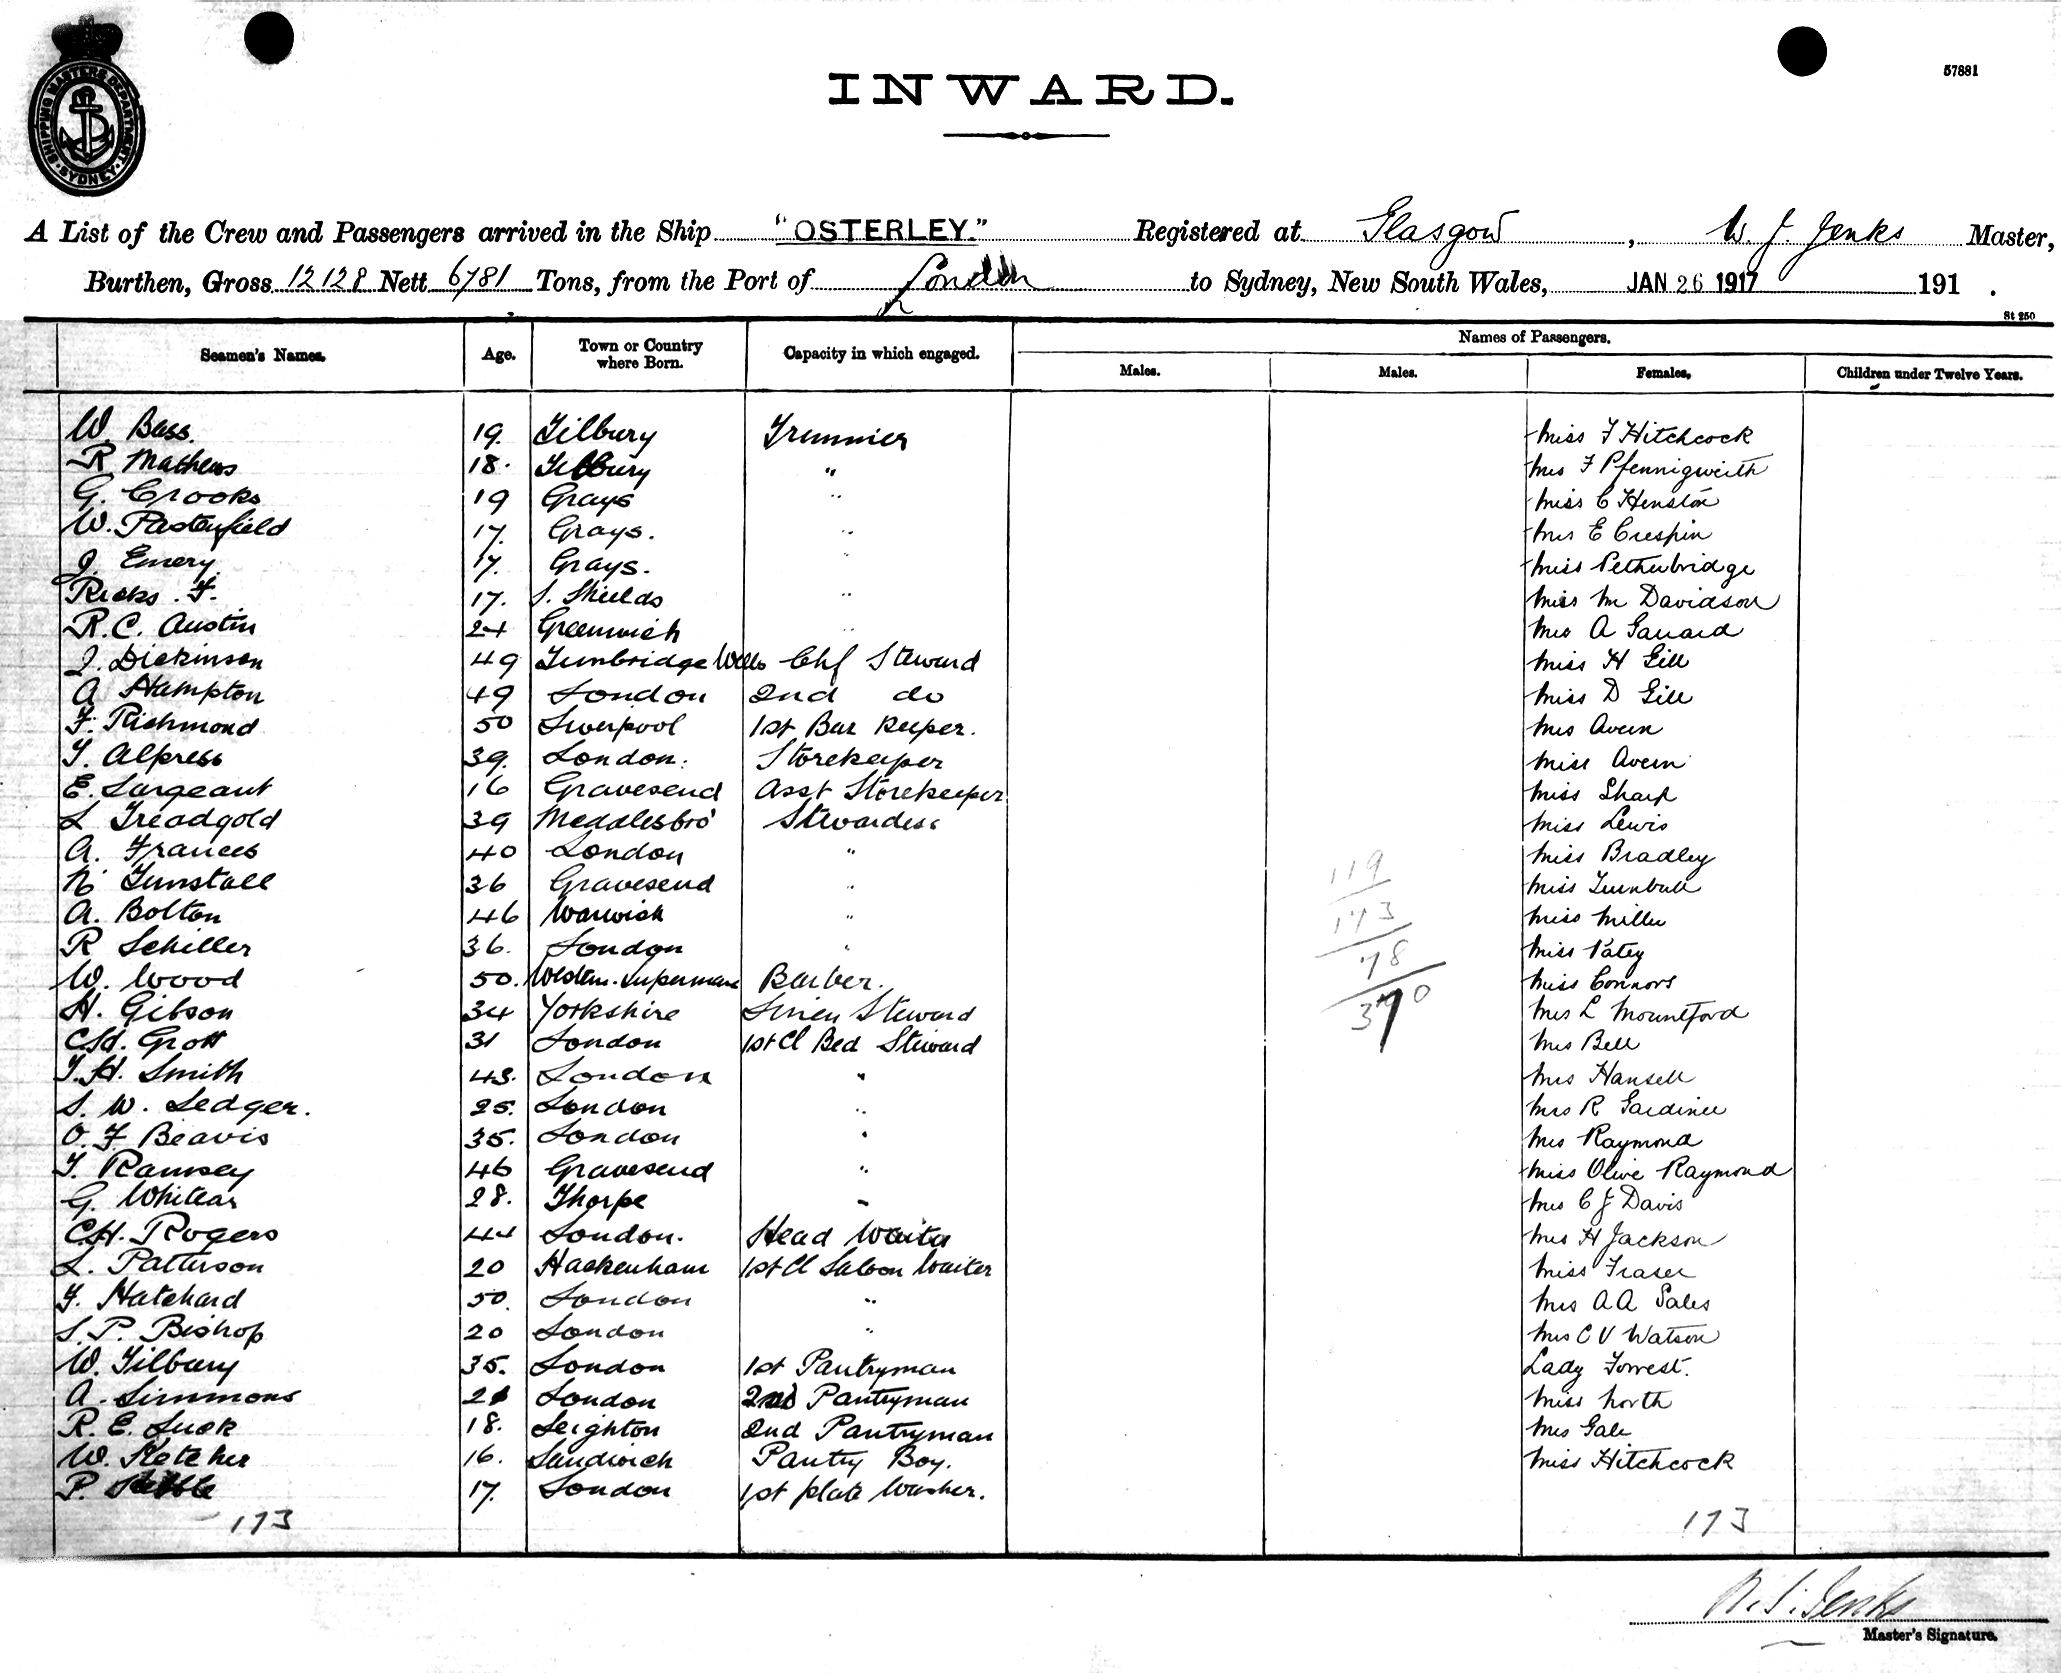 57881
SHIPPING MASTERS DEPARTMENT
SYDNEY
INWARD.
A List of the Crew and Passengers arrived in the Ship "OSTERLEY." Registered at Glasgow, W. J. Jenks Master,
Burthen, Gross 12128 Nett 6781 Tons, from the Port of London to Sydney, New South Wales, JAN 26 1917 191 .
St 250
Seamen's Names. Age. Town or Country where Born. Capacity in which engaged. Names of Passengers.
Males. Males. Females. Children under Twelve Years.
W. Bass. 19. Tilbury Miss F Hitchcock
R Mathews 18. Tilbury " Mrs F Pfennigwerth
G. Crooks 19 Grays " Miss C Henston
W. 17. Grays. " Mrs E Crespin
J. Emery. 17. Grays. " Miss Petherbridge
Ricks. F. 17. S. Shields " Miss M Davidson
R.C. Austin 24 Greenwich " Mrs A Garrard
J. Dickinson 49 Tunbridge Wells Chf Steward Miss H Gill
A Hampton 49 London 2nd do Miss D Gill
F. Richmond 50 Liverpool 1st Bar Keeper. Mrs Avern
T. Alpress 39. London. Storekeeper Miss Avern
E. Sargeant 16 Gravesend Asst Storekeeper Miss Sharp
L Treadgold 39 Meddlesbro' Stewardess Miss Lewis
A. Frances 40 London " Miss Bradley
N. Tunstall 36 Gravesend " Miss Turnbull
A. Bolton 46 Warwick " Miss Miller
R Schiller 36. London " Miss Patey
W. Wood 50. Barber. Miss Connors
H. Gibson 34 Yorkshire Linen Steward Mrs L Mountford
C.H. Grott 31 London 1st Cl Bed Steward Mrs Bell
T.H. Smith 43. London " Mrs Hansell
S. W. Ledger. 25. London " Mrs R Gardiner
O. F Beavis 35. London " Mrs Raymond
T. Ramsey 46 Gravesend " Miss Olive Raymond
G. Whitear 28. Thorpe " Mrs C J Davis
C.H. Rogers 44 London. Head Waiter Mrs H Jackson
L. Patterson 20 Hackenham 1st Cl Saloon Waiter Miss Fraser
F. Hatchard 50. London " Mrs A A Sales
S. P. Bishop 20 London " Mrs C V Watson
W. Tilbury 35. London 1st Pantryman Lady Forrest.
A. Simmons 21 London 2nd Pantryman Miss North
R. E. Luck 18. Leighton 2nd Pantryman Mrs Gale
W. Ketcher 16. Sandwich Pantry Boy. Miss Hitchcock
P. 17. London 1st plate Washer.
119
173
78
370
173 173
W. J. Jenks
Master's Signature.